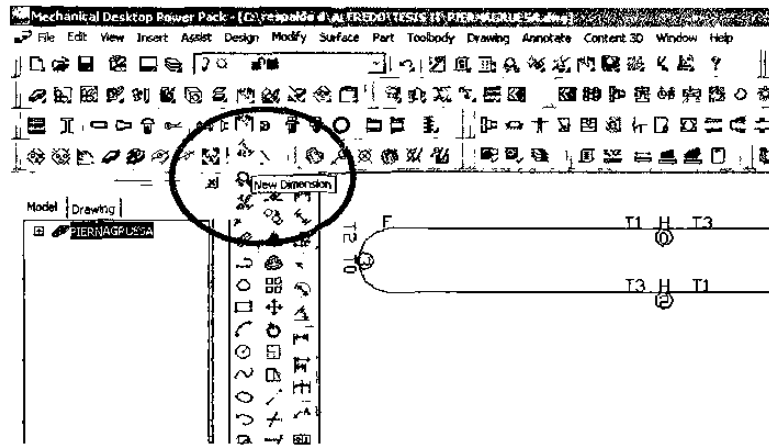 Mechanical Desktop Power Pack - [C:\respaldo d\ALFREDO\TESIS II\PIERNAGRUESA.dwg]
File Edit View Insert Assist Design Modify Surface Part Toolbody Drawing Annotate Content 3D Window Help
New Dimension
Model Drawing
PIERNAGRUESA
F T1 H T3
0
T2
3
T0
T3 H T1
2